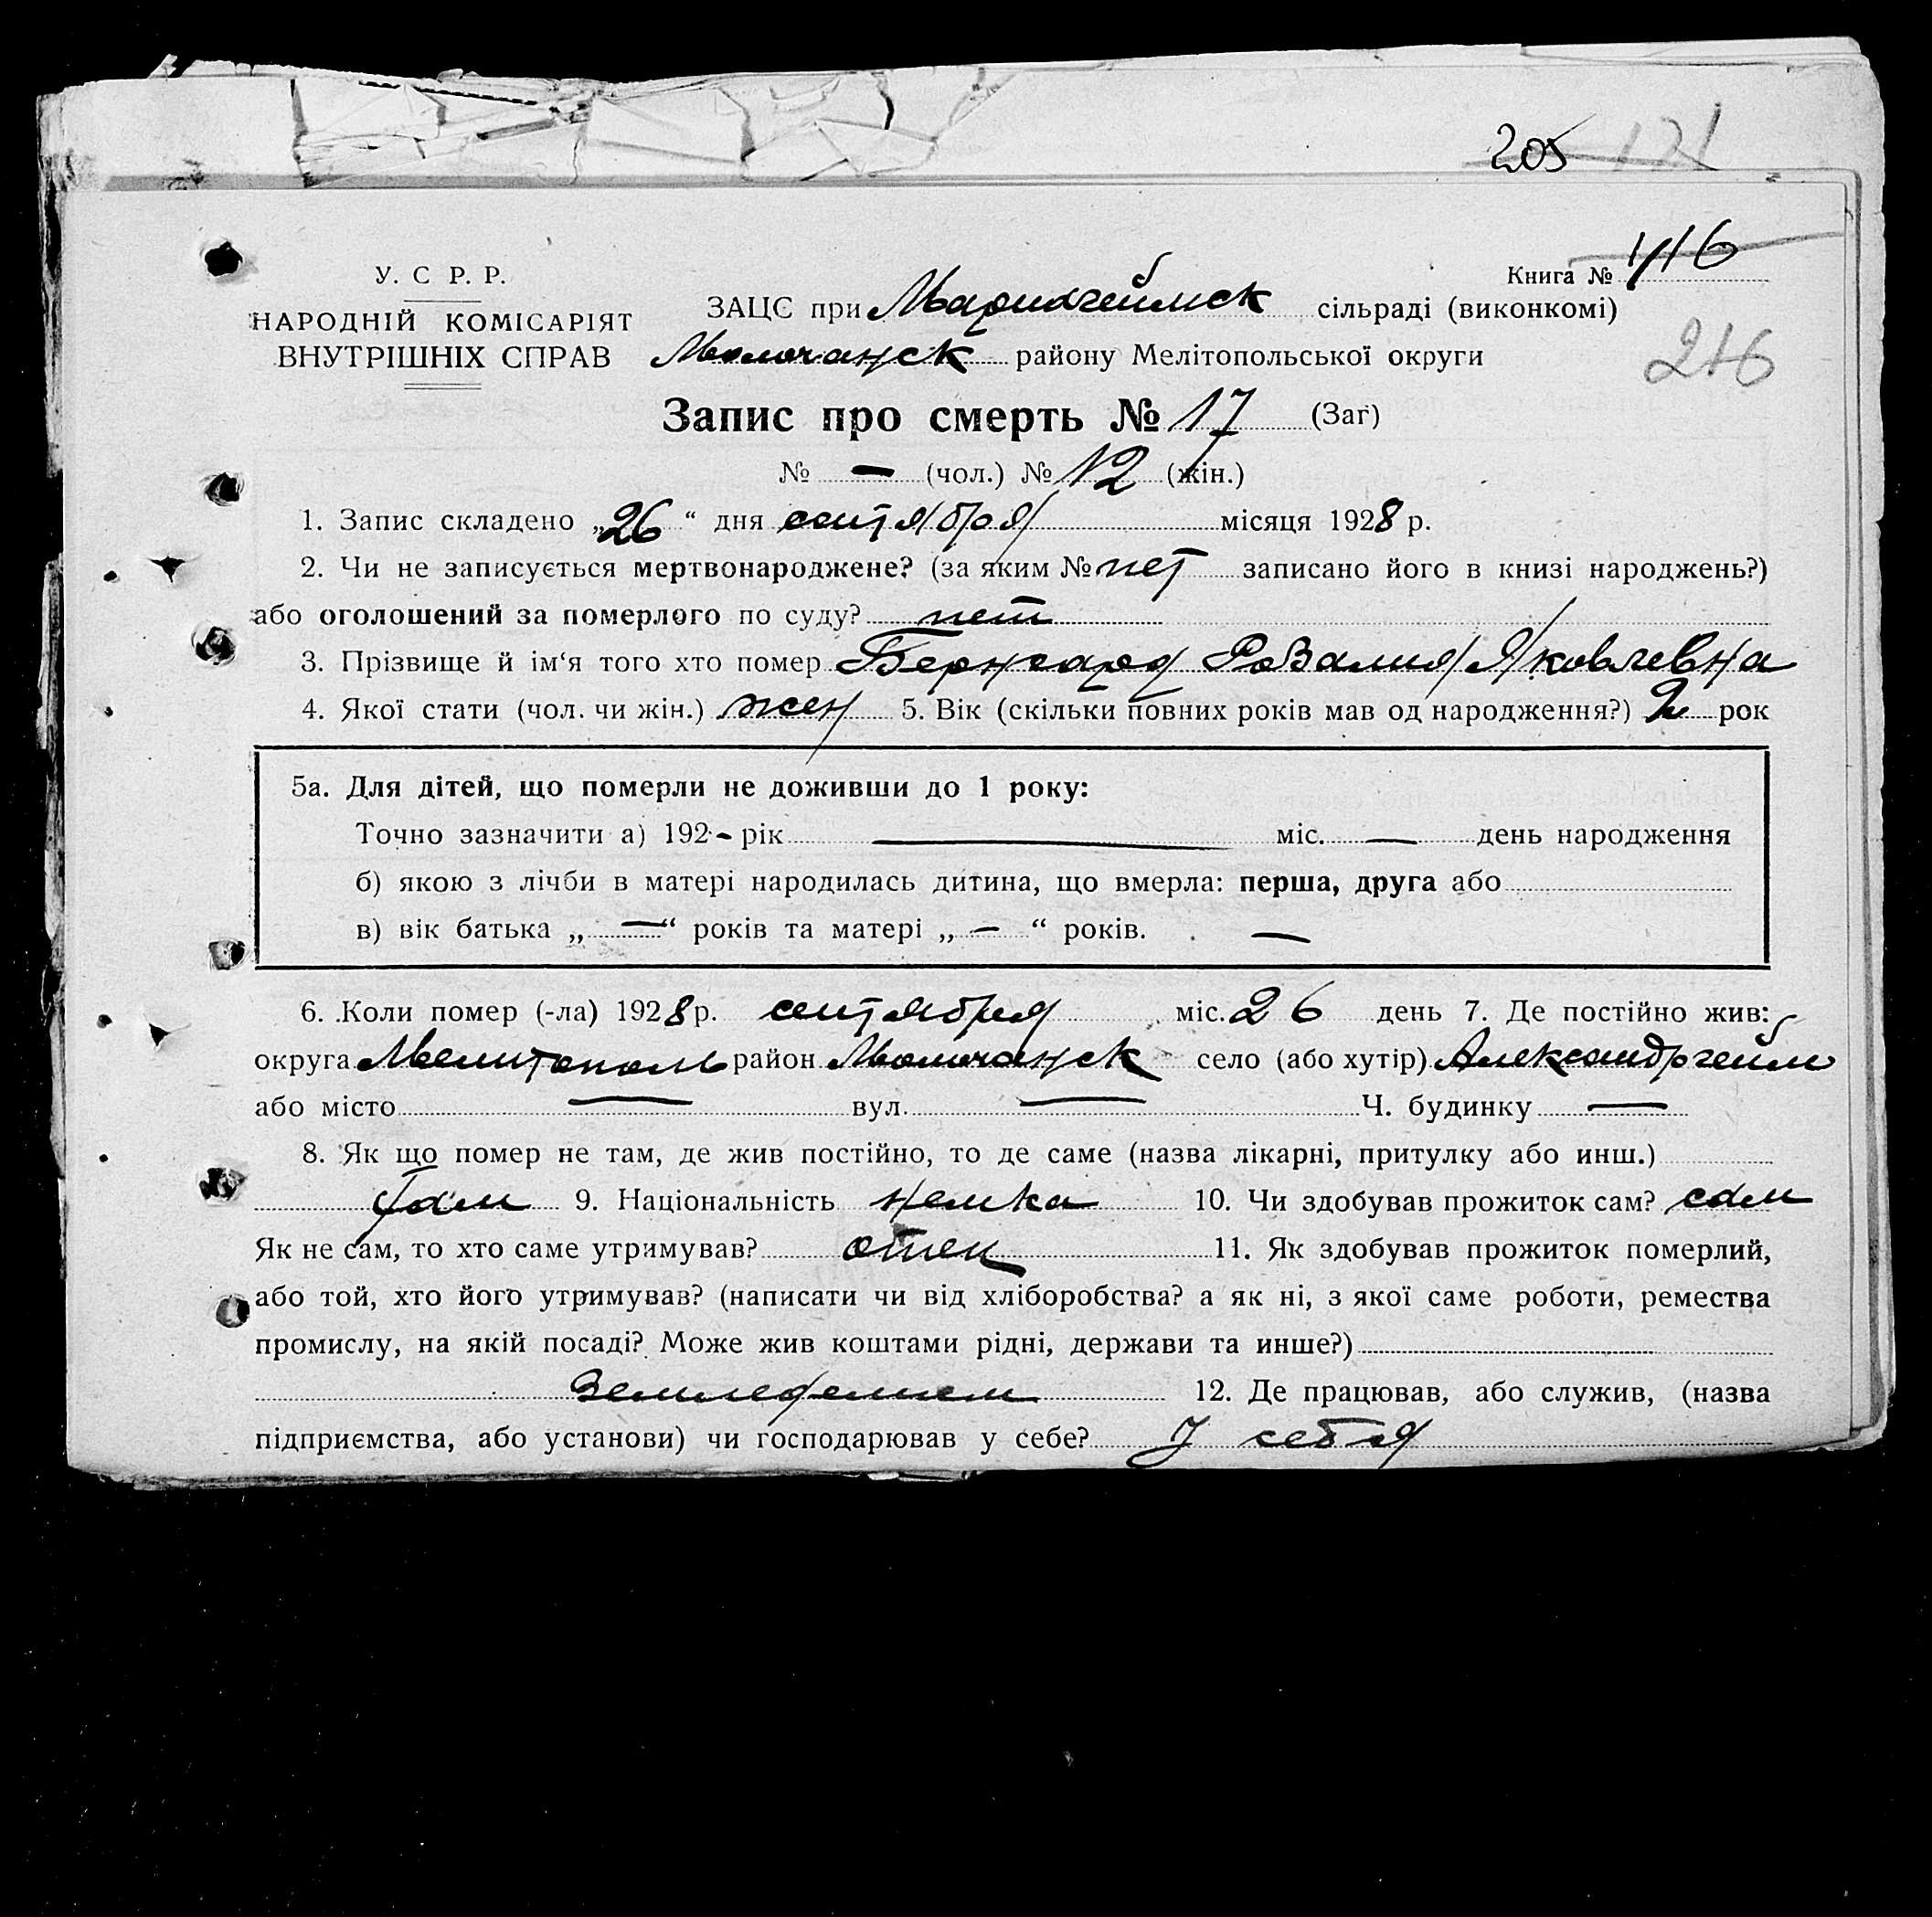 205 121
У. С Р. Р.
НАРОДНІЙ КОМІСАРІЯТ
ВНУТРІШНІХ СПРАВ
Книга № 116
ЗАЦС при Мариагеймск сільраді (виконкомі)
Молочанск району Мелітопольської округи
216
Запис про смерть № 17 (Заг)
№ — (чол.) № 12 (жін.)
1. Запис складено „26“ дня сентября місяця 1928 р.
2. Чи не записується мертвонароджене? (за яким № нет записано його в книзі народжень?)
або оголошений за померлого по суду? нет
3. Прізвище й ім‘я того хто помер Бернгард Розалия Яковлевна
4. Якої стати (чол. чи жін.) жен 5. Вік (скільки повних років мав од народження?) 2 рок
5а. Для дітей, що померли не доживши до 1 року:
Точно зазначити а) 192 - рік — міс. — день народження
б) якою з лічби в матері народилась дитина, що вмерла: перша, друга або
в) вік батька „ — “ років та матері „ — “ років. —
6. Коли помер (-ла) 1928 р. сентября міс. 26 день 7. Де постійно жив:
округа Мелитополь район Молочанск село (або хутір) Александргейм
або місто — вул. — Ч. будинку —
8. Як що помер не там, де жив постійно, то де саме (назва лікарні, притулку або инш.)
там 9. Національність немка 10. Чи здобував прожиток сам? сам
Як не сам, то хто саме утримував? отец 11. Як здобував прожиток померлий,
або той, хто його утримував? (написати чи від хліборобства? а як ні, з якої саме роботи, ремества
промислу, на якій посаді? Може жив коштами рідні, держави та инше?)
Земледелием 12. Де працював, або служив, (назва
підприємства, або установи) чи господарював у себе? У себя